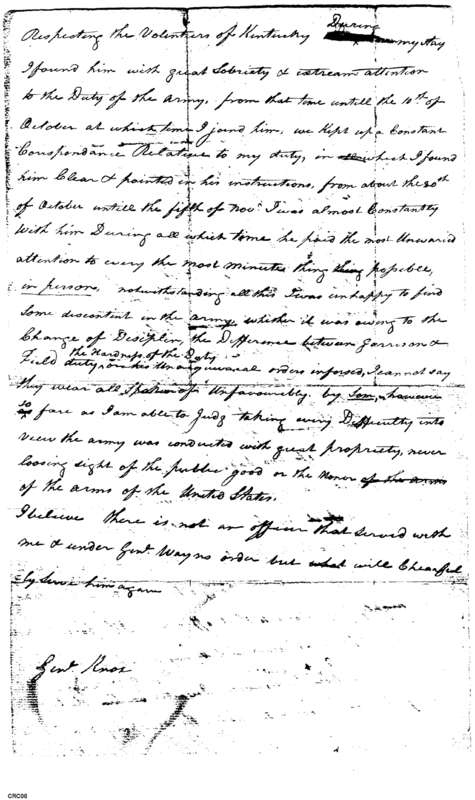 Respecting the Volentiers of Kentucky During my stay
I found him with great Sobriety & extream attention
to the Duty of the army, from that time untill the 10th of
October at which time I joind him, we Kept up a Constant
Corespondance Relative to my duty, in which I found
him Clear & pointed in his instructions, from about the 20th
of October untill the fifth of Novr. I was almost Constantly
with him During all which time he paid the most Unwaried
attention to every the most minute thing thing possible,
in person, notwithstanding all this I was unhappy to find
Some discontent in the army, whether it was owing to the
Change of Disciplin, the Differance between Garrison &
the Hardness of the Duty
Field duty, or orders inforsed, I cannot say
they wear all Spoken of Unfavouribly by Som, however
so fare as I am able to Judg taking every Difficulty into
view the army was conducted with great propriety, never
loosing sight of the publick good or the Honor of the arms
of the arms of the United States.
I believe there is not an officer that served with
me & under Genl. Wayns order but what will Chearful
ly Serve him again
Genl. Knox
CRC06